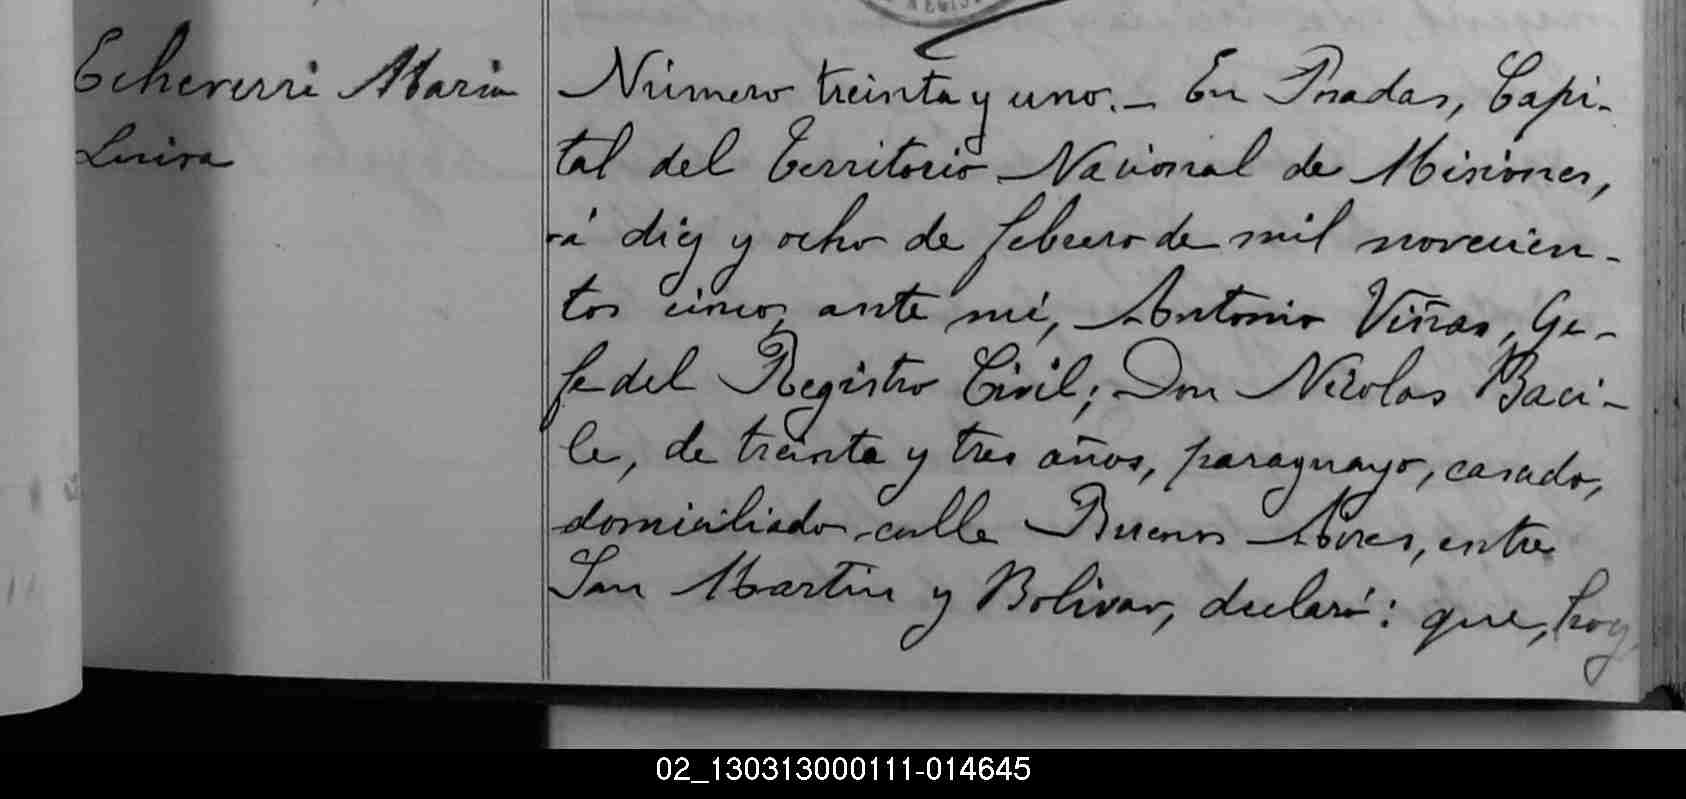 Echeverri Maria
Luisa
Número treinta y uno.— En Posadas, Capi-
tal del Territorio Nacional de Misiones,
á diez y ocho de febrero de mil novecien-
tos cinco, ante mí, Antonio Viñas, Ge-
fe del Registro Civil; Don Nicolas Baci-
le, de treinta y tres años, paraguayo, casado,
domiciliado calle Buenos Aires, entre
San Martin y Bolivar, declaró: que, hoy
02_130313000111-014645